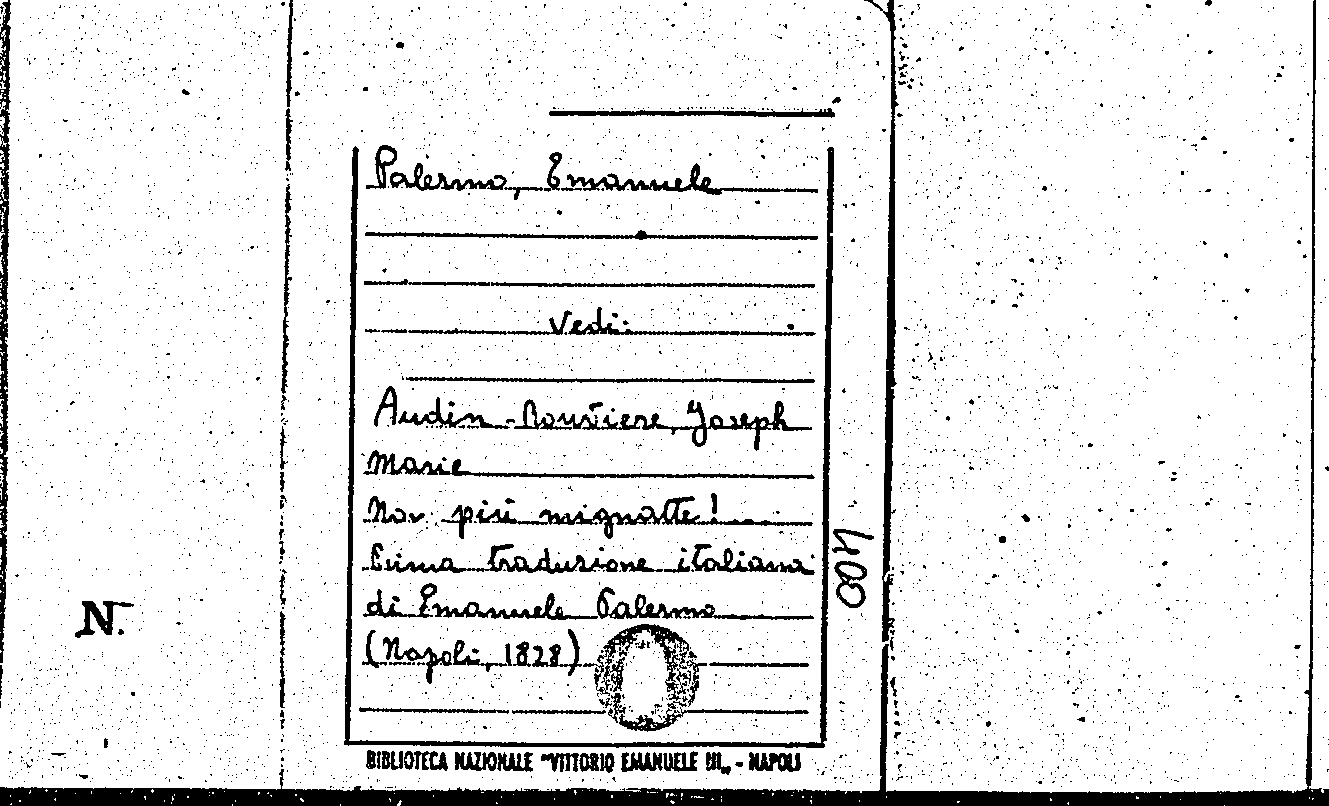 Palermo, Emanuele
Vedi:
Audin-Rouvière, Joseph
Marie
Non più mignatte!...
Prima traduzione italiana
di Emanuele Palermo
(Napoli, 1828)
400
N.
BIBLIOTECA NAZIONALE "VITTORIO EMANUELE III„ - NAPOLI